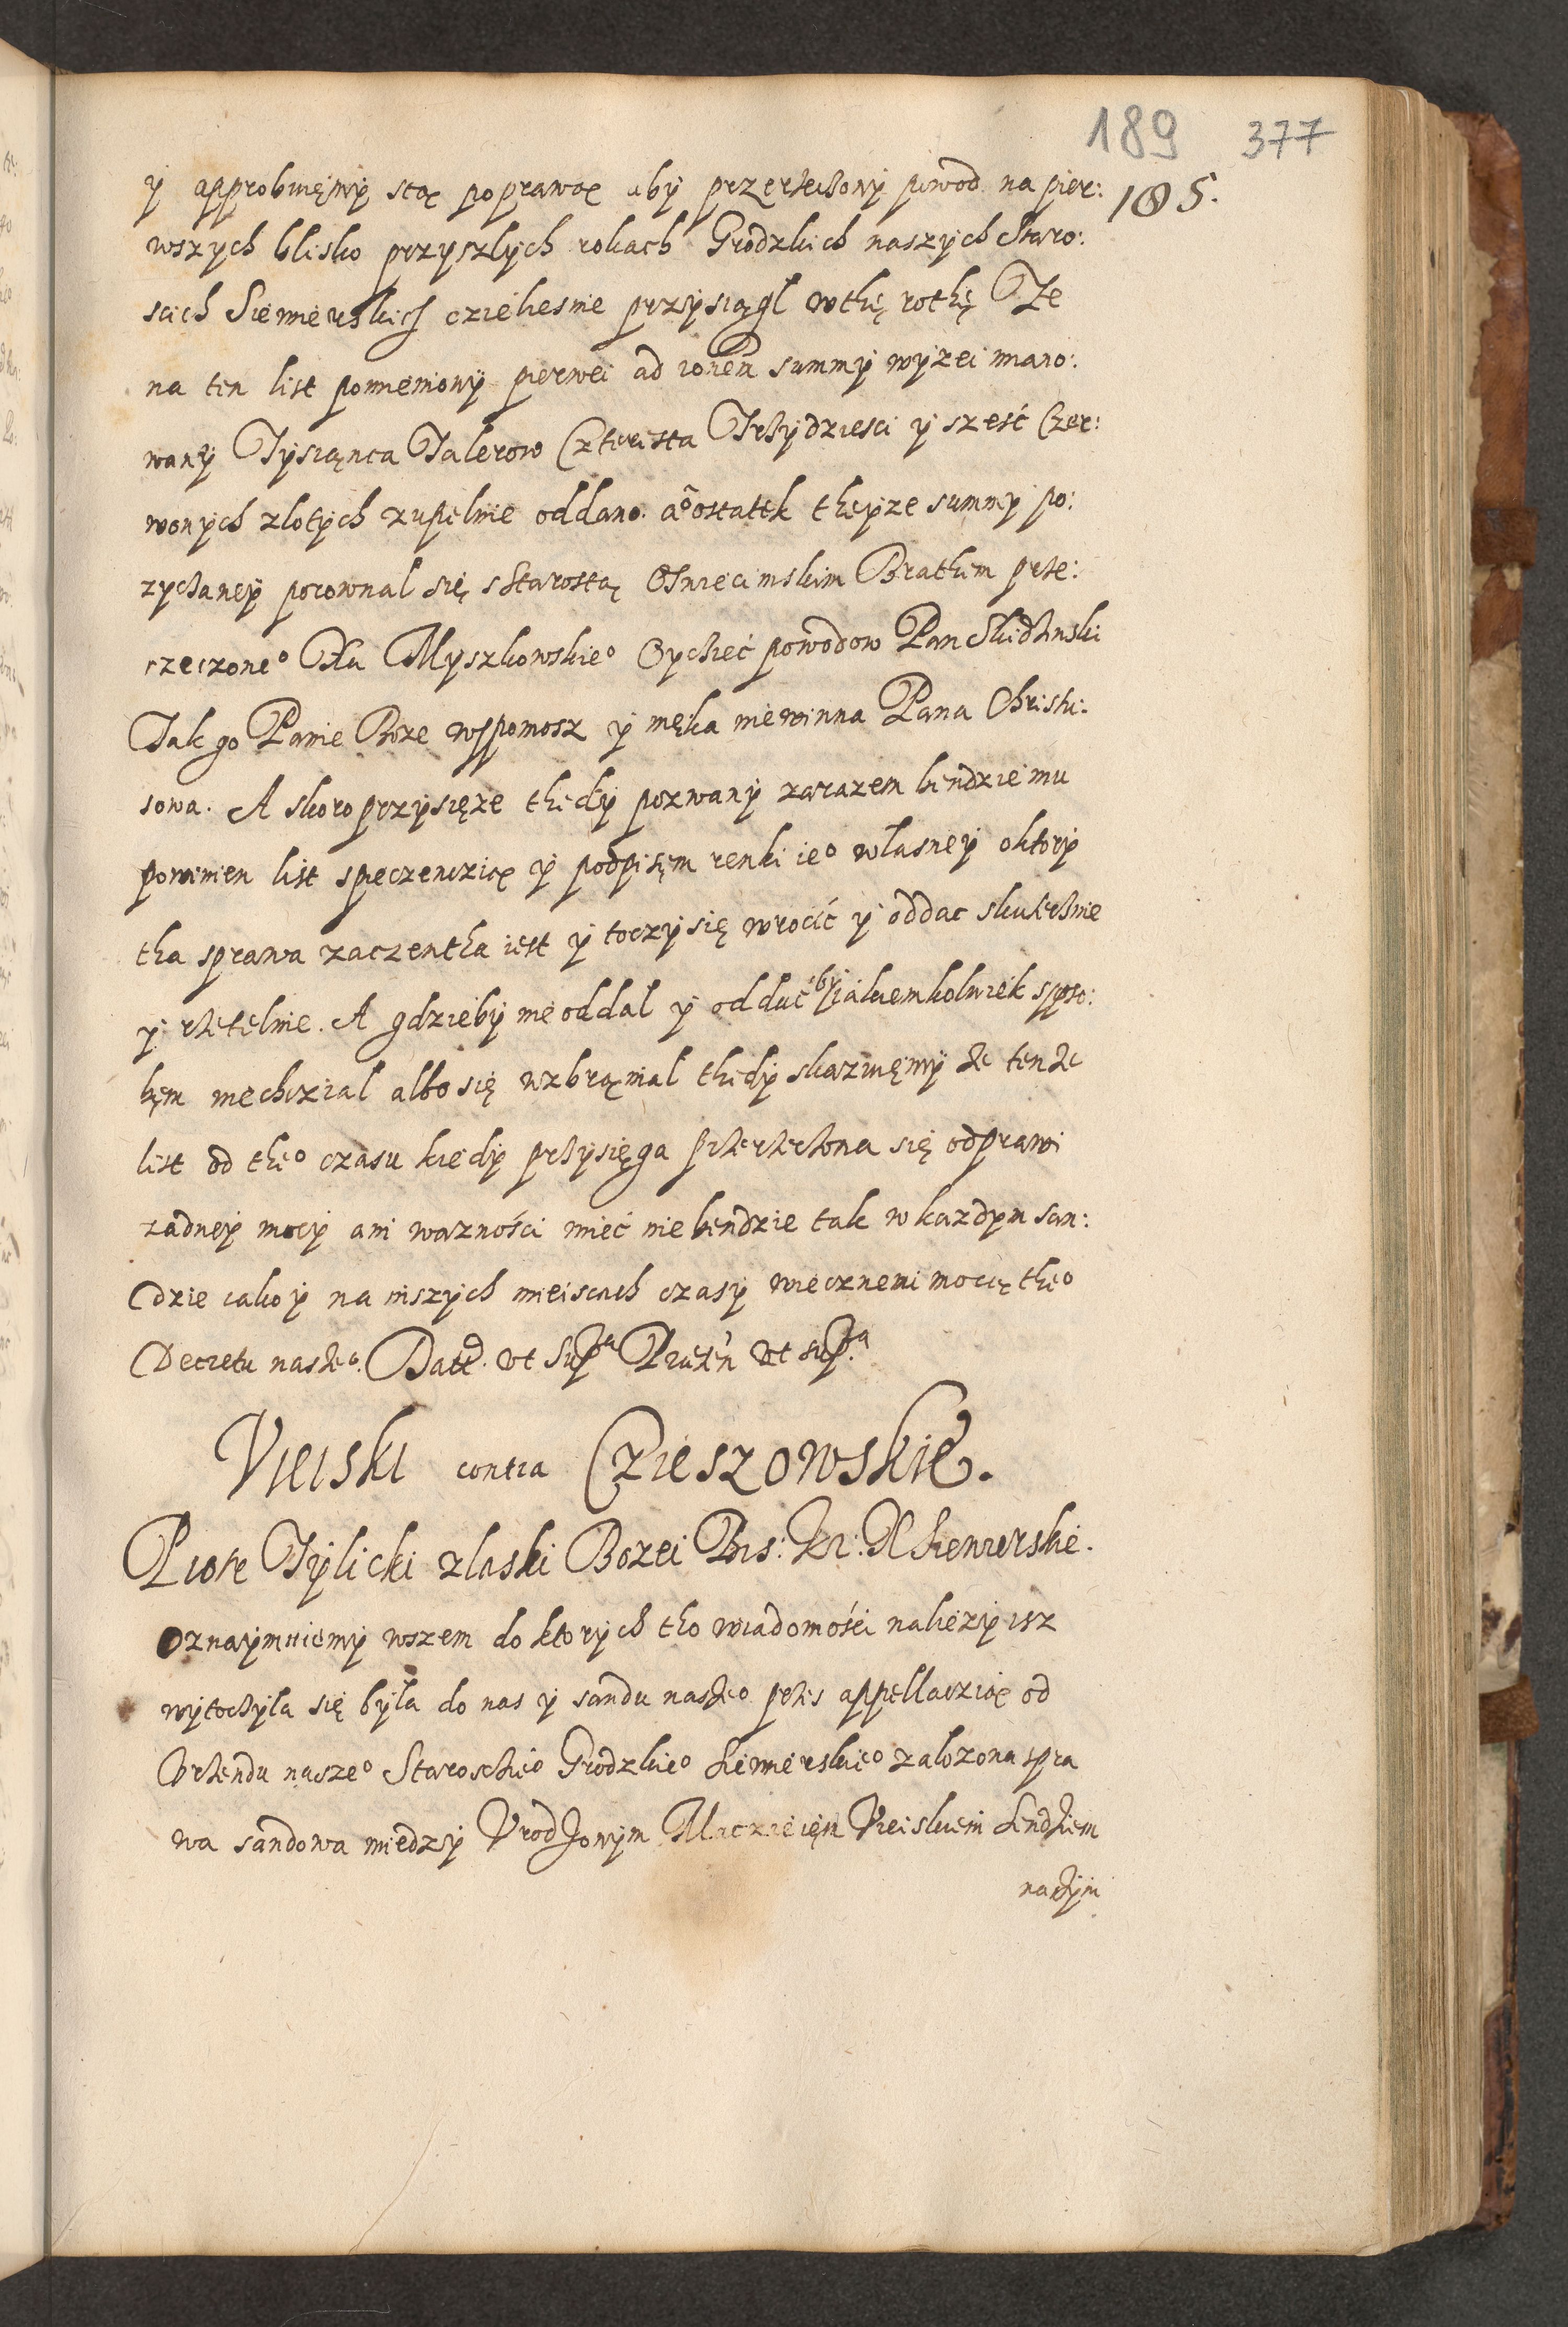 189 377
185.
y approbuięmy stą poprawą aby przerzeczony powod na pier:
wszych blisko przyszlych rokach Grodzkich naszych Staro:
scich Siewierskich czielesnie przysiągl w thę rothę Ze
na ten list pomieniony pierwei ad ronem summy wyzei miano:
wany Tysiąnca Talerow Czterista Trzydziesci y sześć Czer:
wonych zlotych zupelnie oddano. a o ostatek theyze summy po:
zyczaney porownal się s Starostą Oswiecimskim Brathem prze:
rzeczone° Xa Myszkowskie° Oychieć powodow Pan Skidzinski
Tak go Panie Boze wspomosz y męka niewinna Pana Christu.
sowa. A skoro przysięze thedy pozwany zarazem bendzie mu
powinien list s pieczenczią y podpisęm renki ie° własney o ktory
tha sprawa zaczentha iest y toczy się wrocić y oddac skutecznie
y rzetelnie. A gdzieby nie oddal y oddać by iakiemkolwiek sposo:
bęm niechczial albo się wzbraniał thedy skazuięmy że tenże
list od the° czasu kiedy przysięga przerzeczona się odprawi
zadney mocy ani wazności mieć nie bendzie tak w kazdym san:
dzie iako y na inszych mieiscach czasy wiecznemi mocą the°
Decretu nasze°. Datt. vt supra Pntibus vt supra
Vieiski contra Czieszowskie.
Piotr Tylicki z laski Bozei Bis: Kr: X Siewierskie.
Oznaymuiemy wszem do ktorych tho wiadomości nalezy isz
wytoczyła się była do nas y sandu nasze° przes appellaczią od
Vrzendu nasze° Staroschie° Grodzkie° Siewierskie° załozona spra
wa sandowa miedzy Vrodzonym Macziejęm Vieiskiem Sendziem
naszym